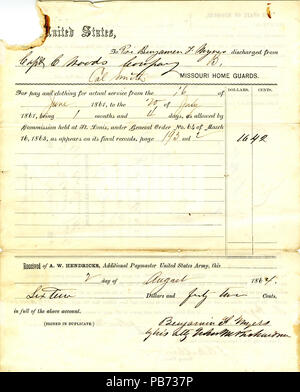 United States,
To Benjamin F Myers discharged from
Capt. C Woods Company D.
Col Smith MISSOURI HOME GUARDS.
DOLLARS. CENTS.
For pay and clothing for actual service from the 16 of
June 1861, to the 20 of July
1861, being 1 months and 4 days, as allowed by
Commission held at St. Louis, under General Order No. 64 of March
16, 1863, as appears on its final records, page 193 and 2 16 42
Received of A. W. HENDRICKS, Additional Paymaster United States Army, this
2 day of August 1864.
Sixteen Dollars and forty two Cents,
in full of the above account.
(SIGNED IN DUPLICATE.) Benjamin F Myers
by his atty
alamy
Image ID: PB737P
www.alamy.com